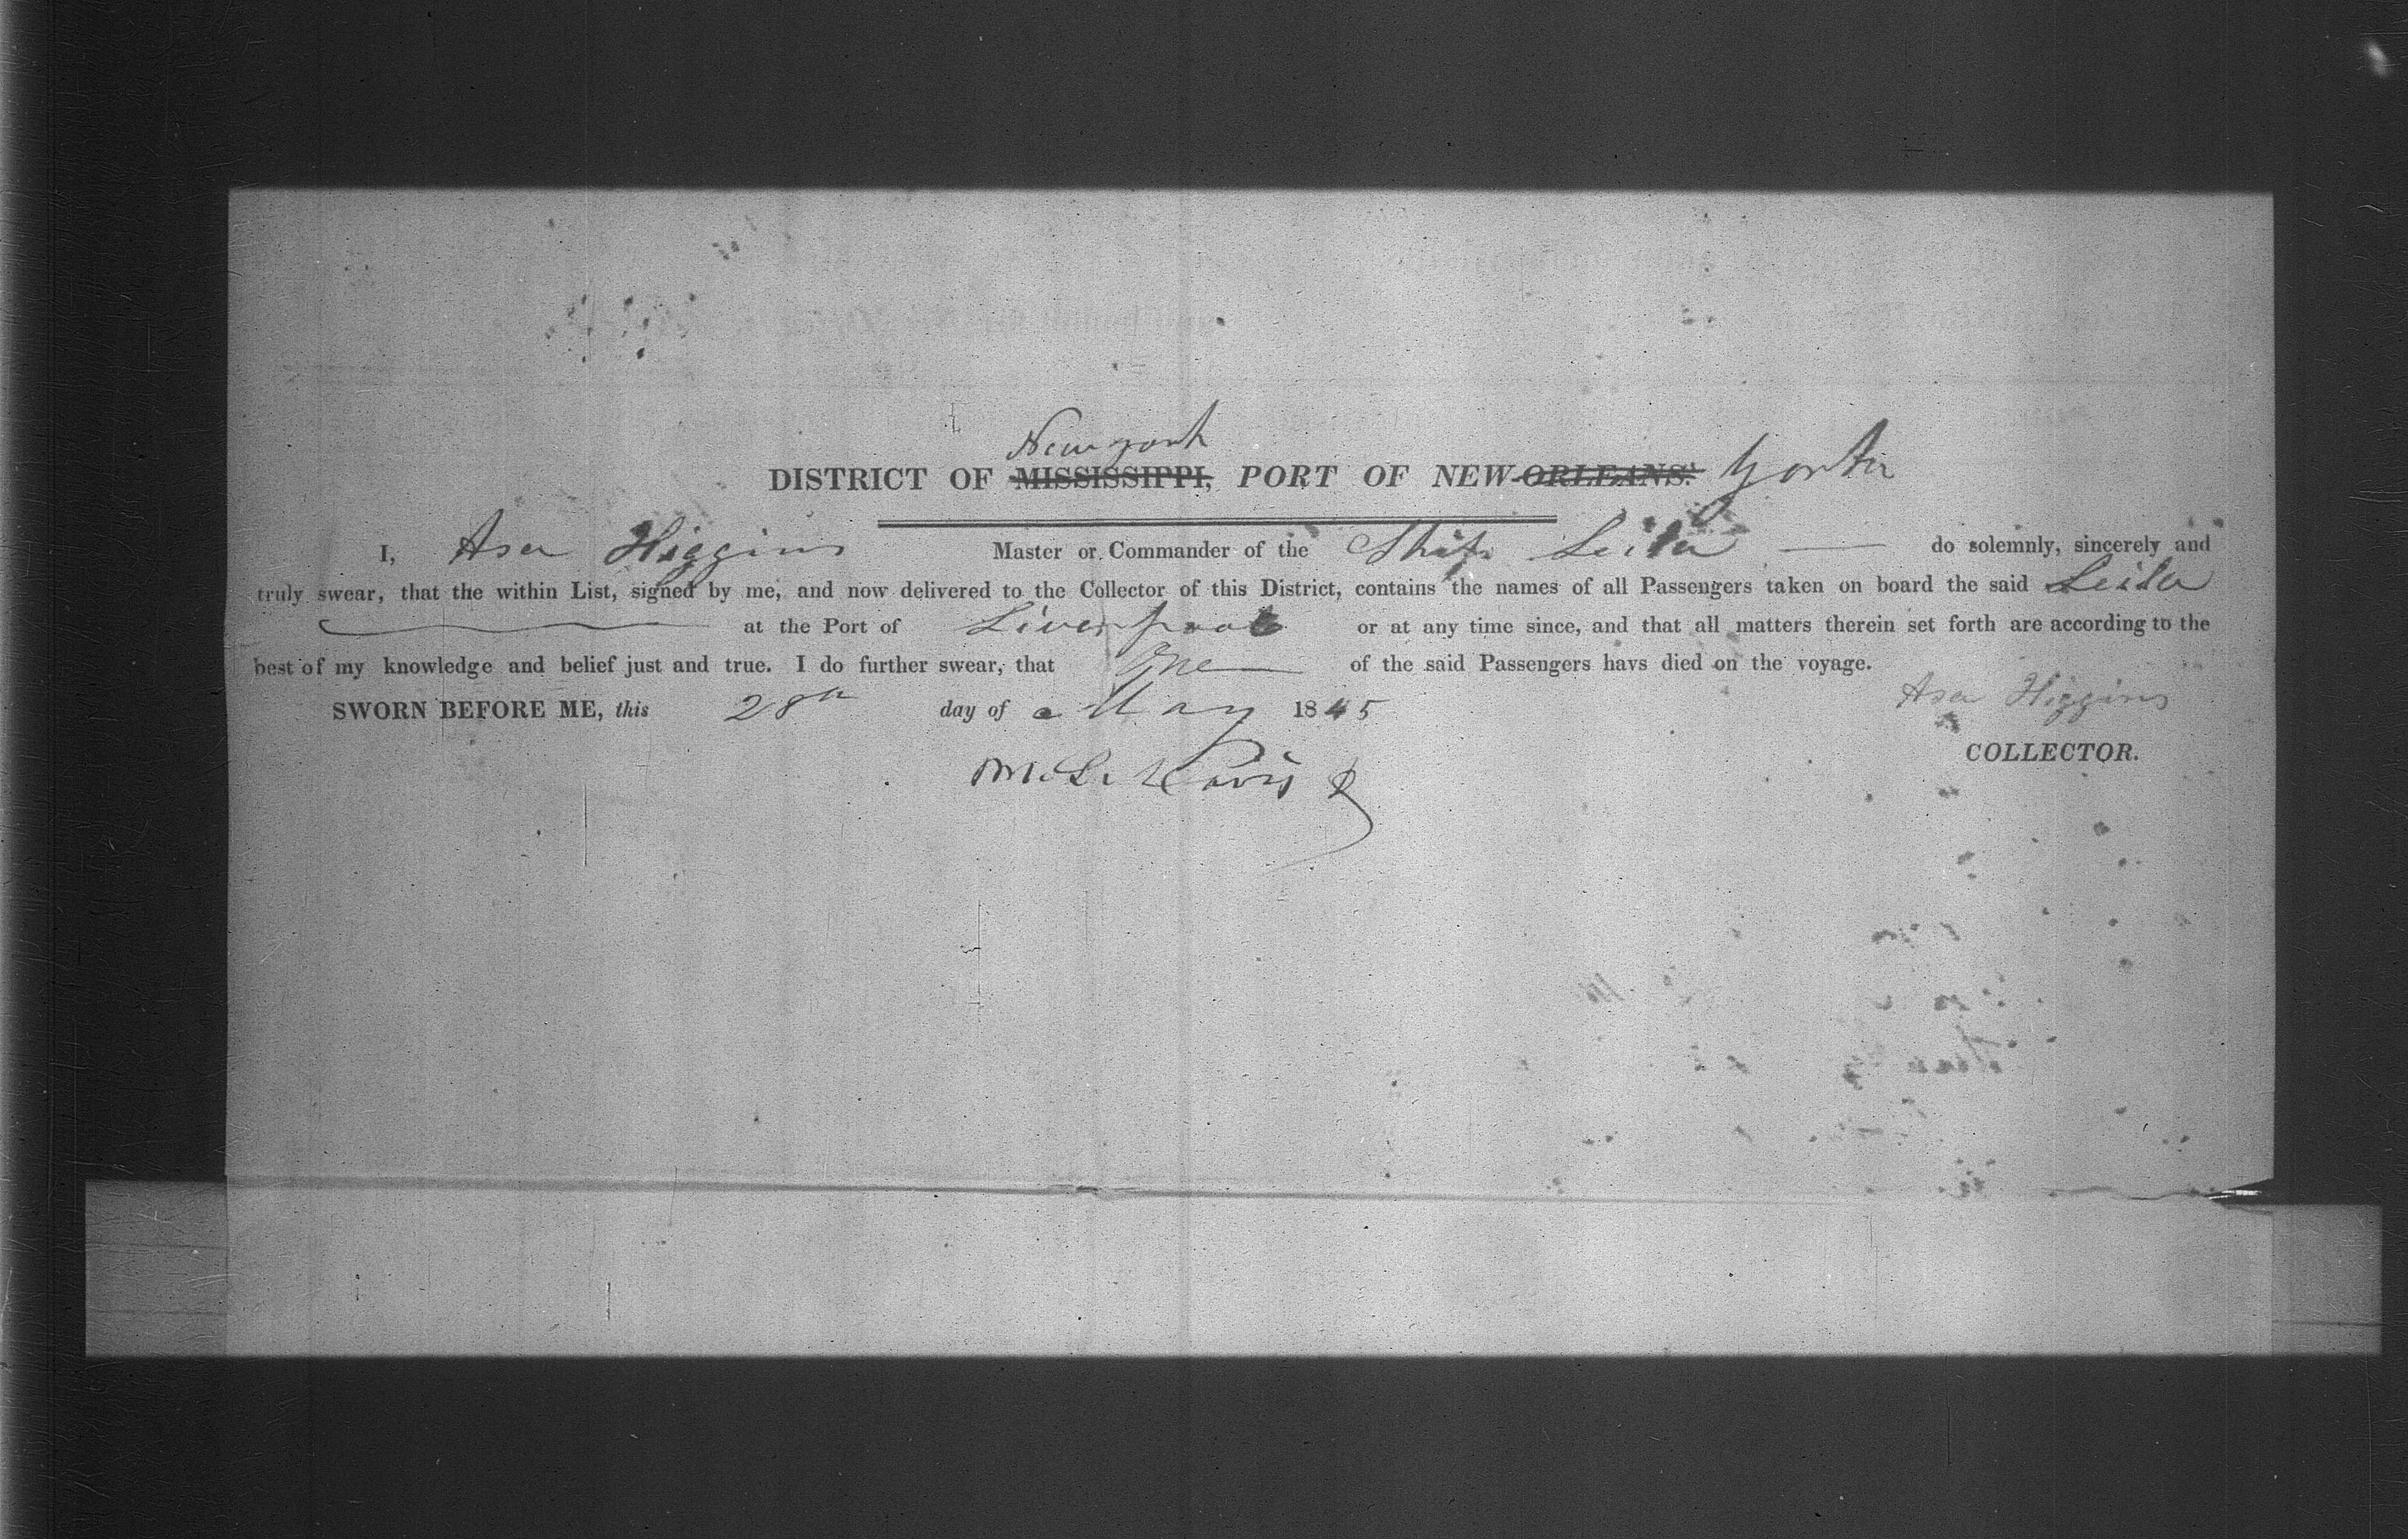 New york
DISTRICT OF MISSISSIPPI, PORT OF NEW-ORLEANS. York
I, Asa Higgins Master or Commander of the Ship Leila do solemnly, sincerely and
truly swear, that the within List, signed by me, and now delivered to the Collector of this District, contains the names of all Passengers taken on board the said Leila
at the Port of Liverpool or at any time since, and that all matters therein set forth are according to the
best of my knowledge and belief just and true. I do further swear, that One of the said Passengers havs died on the voyage.
SWORN BEFORE ME, this 28th day of May 1845
Asa Higgins
COLLECTOR.